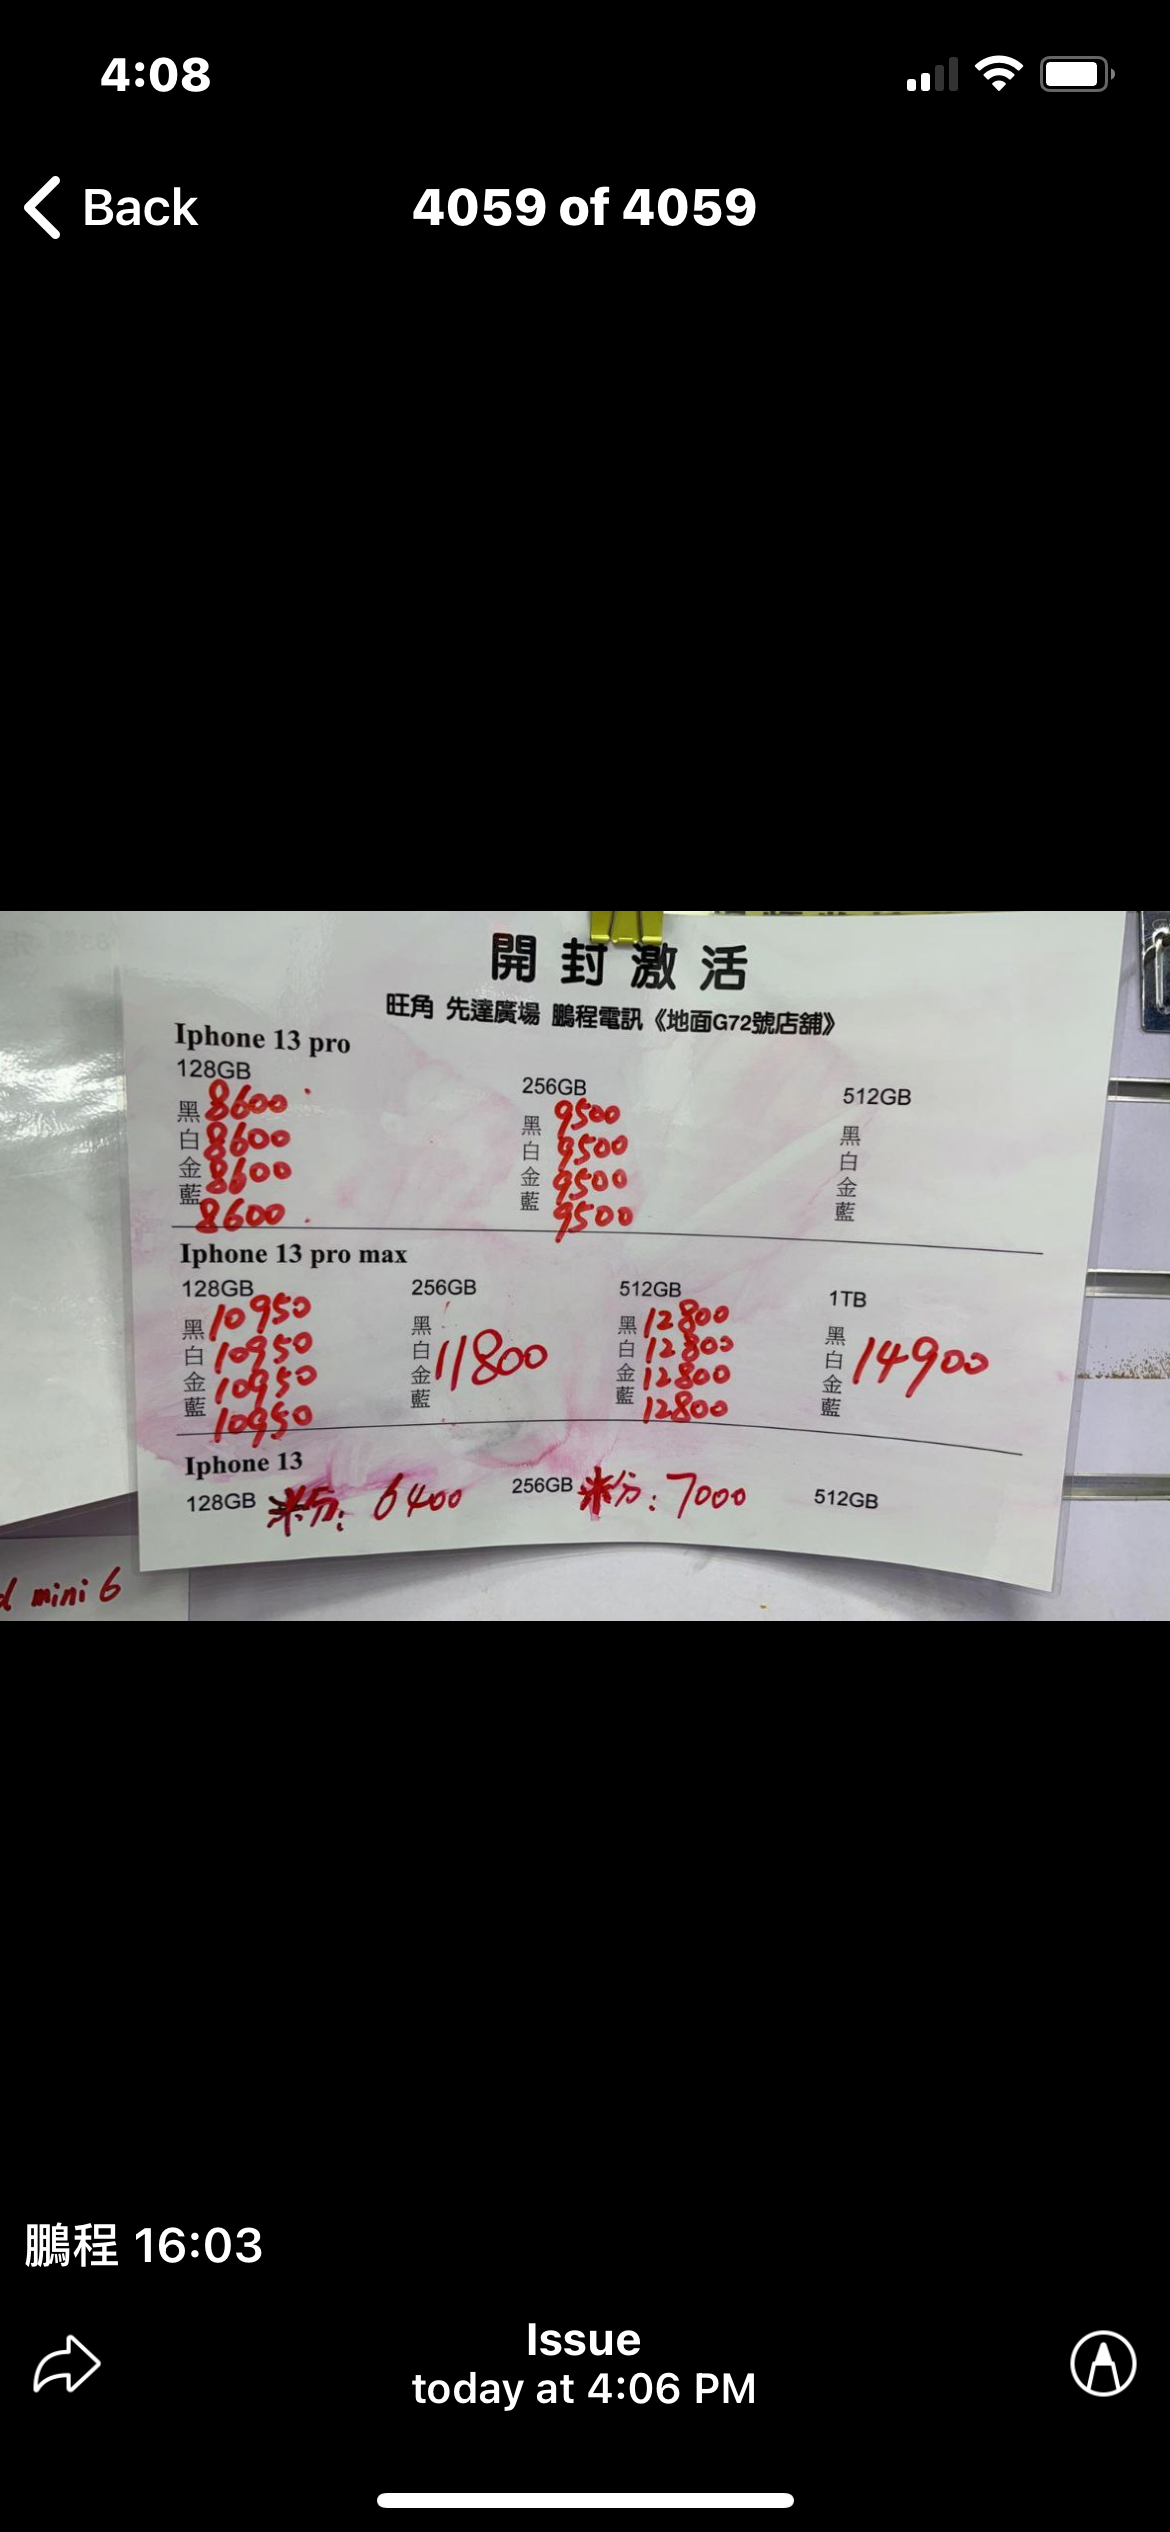 4:08
Back
4059 of 4059
開封激活
旺角 先達廣場 鵬程電訊《地面G72號店舖》
Iphone 13 pro
128GB
黑 8600
白 8600
金 8600
藍 8600
256GB
黑 9500
白 9500
金 9500
藍 9500
512GB
黑
白
金
藍
Iphone 13 pro max
128GB
黑 10950
白 10950
金 10950
藍 10950
256GB
黑
白
金
藍
11800
512GB
黑 12800
白 12800
金 12800
藍 12800
1TB
黑
白
金
藍
14900
Iphone 13
128GB 米分: 6400
256GB 米分: 7000
512GB
mini 6
鵬程 16:03
Issue
today at 4:06 PM